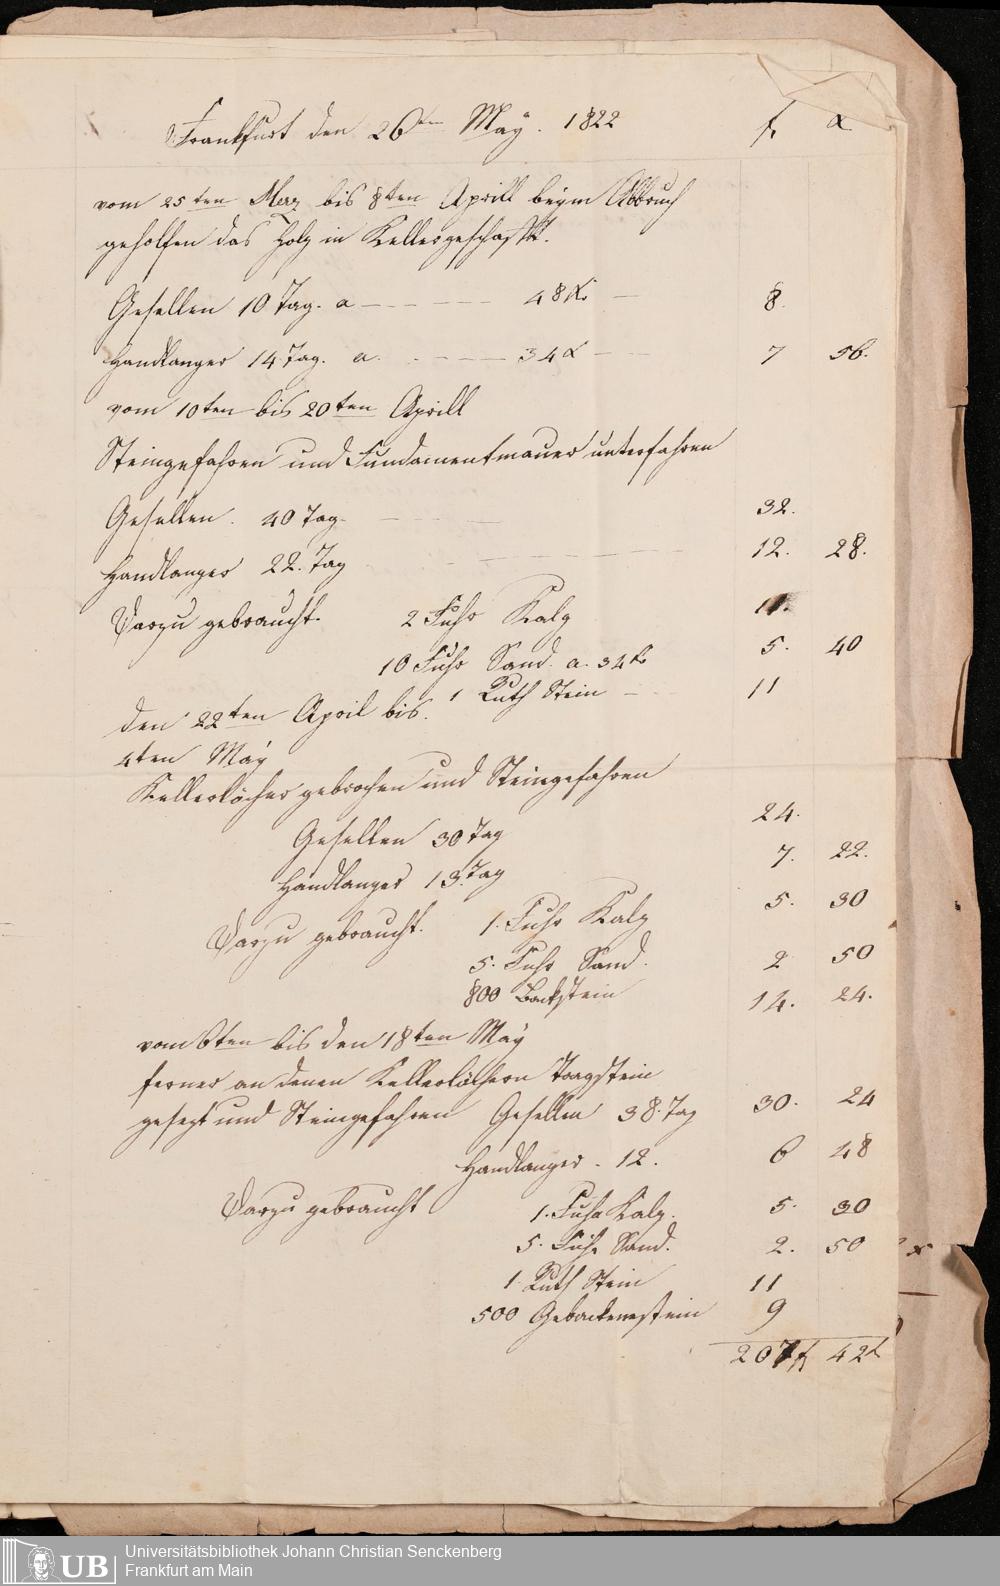 Frankfurt den 26ten Maÿ. 1822 f. x
vom 25ten Merz bis 8ten Aprill beÿm Abbruch
geholfen das Holz in Keller geschaft.
Gesellen 10 Tag. a — 48 Kr. — 8.
Handlanger 14 Tag. a. — 34 x — 7 56.
vom 10ten bis 20ten Aprill
Steingefahren und Fundamentmauer unterfahren
Gesellen. 40 Tag. — 32.
Handlanger 22. Tag — 12. 28.
Darzu gebraucht. 2 Fuhr Kalg 11.
10 Fuhr Sand. a. 34 Kr 5. 40
1 Ruth Stein — 11
den 22ten April bis.
4ten Maÿ
Kellerlöcher gebrochen und Steingefahren
Gesellen 30 Tag 24.
Handlanger 13. Tag 7. 22.
Darzu gebraucht. 1. Fuhr Kalg 5. 30
5. Fuhr Sand. 2 50
800 Backstein 14. 24.
vom 6ten bis den 18ten Maÿ
ferner an denen Kellerlöchern Tragstein
gesezt und Steingefahren Gesellen 38. Tag 30. 24
Handlanger. 12. 6 48
Darzu gebraucht 1. Fuhr Kalg. 5. 30
5. Fuhr Sand. 2. 50
1. Ruth Stein 11
500 Gebackenestein 9
207 f 42 x
UB Universitätsbibliothek Johann Christian Senckenberg
Frankfurt am Main